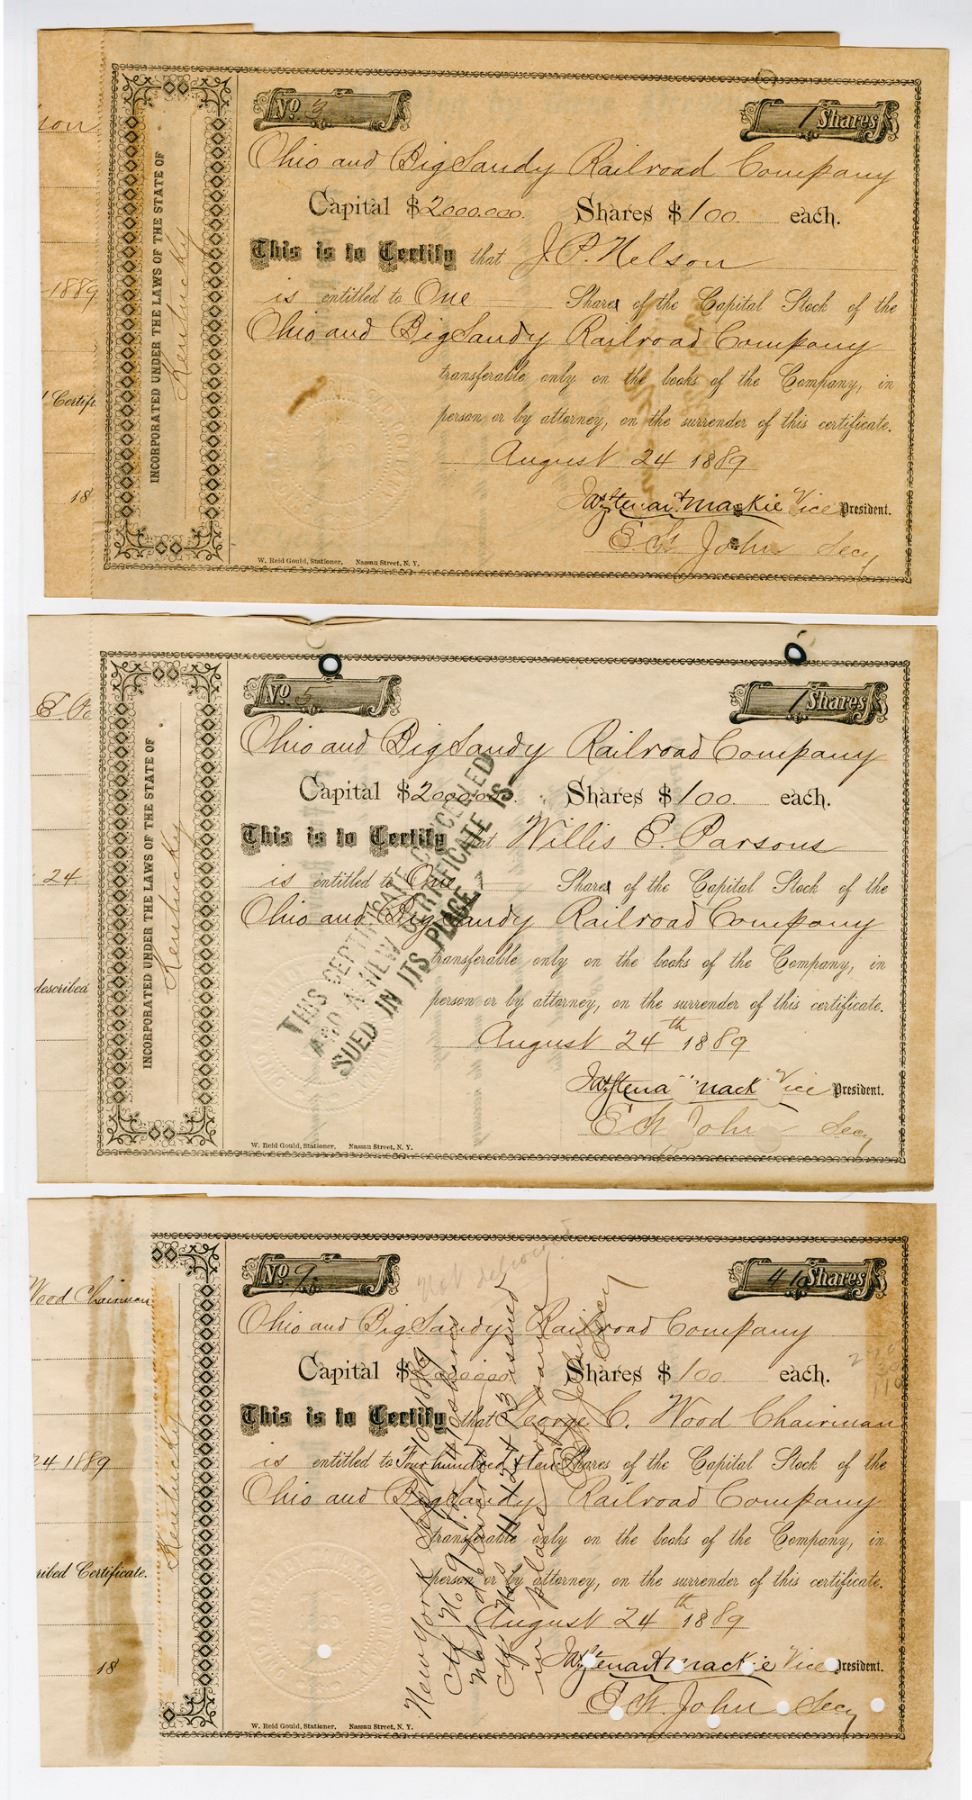 ion
1889
Certifi
18
INCORPORATED UNDER THE LAWS OF THE STATE OF
Kentucky
No
1 Shares
Ohio and Big Sandy Railroad Company
Capital $2000.000. Shares $100. each.
This is to Certify that J. P. Nelson
is entitled to One Share of the Capital Stock of the
Ohio and Big Sandy Railroad Company
transferable only on the books of the Company, in
person or by attorney, on the surrender of this certificate.
August 24 1889
Jas Stewart Mackie Vice President.
E. St. John Secy
W. Reid Gould, Stationer, Nassau Street, N. Y.
24.
described
INCORPORATED UNDER THE LAWS OF THE STATE OF
Kentucky
No 5
1 Shares
Ohio and Big Sandy Railroad Company
Capital $2000.000. Shares $100. each.
This is to Certify that Willis E. Parsons
is entitled to One Share of the Capital Stock of the
Ohio and Big Sandy Railroad Company
transferable only on the books of the Company, in
person or by attorney, on the surrender of this certificate.
August 24th 1889
Vice President.
E. St. John Secy
W. Reid Gould, Stationer, Nassau Street, N. Y.
THIS CERTIFICATE CANCELLED
AND A NEW CERTIFICATE IS
SUED IN ITS PLACE
Wood Chairman
24 1889
ribed Certificate.
18
Kentucky
No 9.
410 Shares
Ohio and Big Sandy Railroad Company
Capital $2000.000. Shares $100. each.
This is to Certify that George C. Wood Chairman
is entitled to Four hundred & ten Shares of the Capital Stock of the
Ohio and Big Sandy Railroad Company
transferable only on the books of the Company, in
person or by attorney, on the surrender of this certificate.
August 24th 1889
Jas Stewart Mackie Vice President.
E. St. John Secy
W. Reid Gould, Stationer, Nassau Street, N. Y.
New York Sept 10 1889
Ctf No 9 for 410 shares
Not delivered
Ctf Nos 11 12 & 13 issued
in place of same
E St John Secy